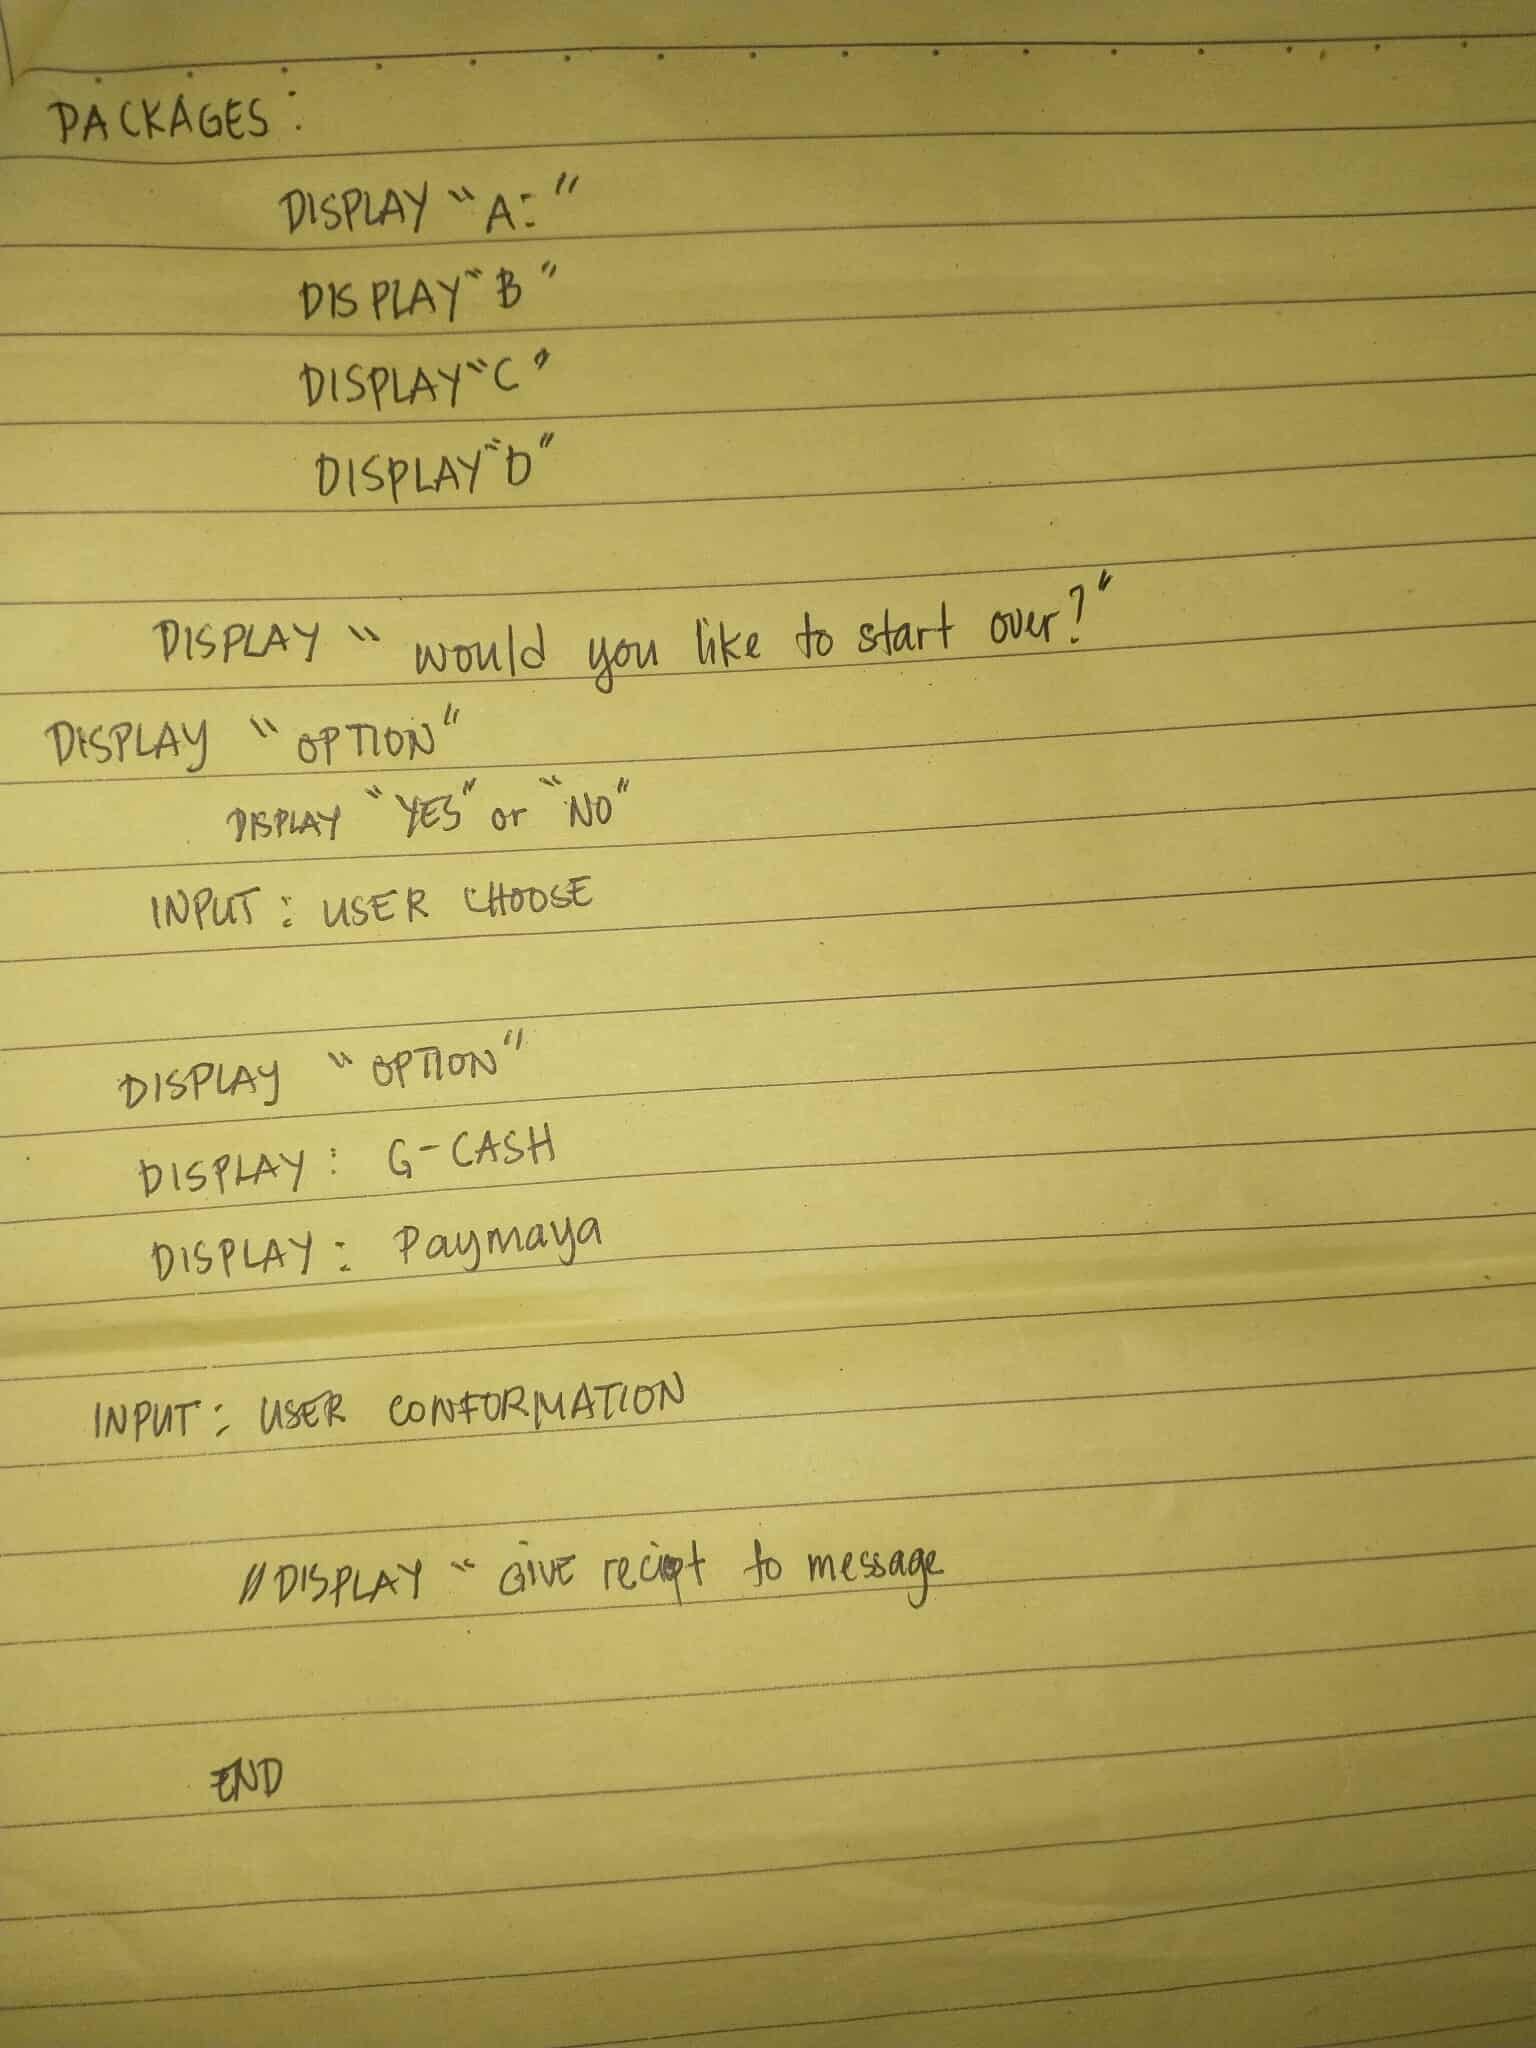 PACKAGES:
DISPLAY "A:"
DISPLAY "B"
DISPLAY "C"
DISPLAY "D"
DISPLAY "would you like to start over?"
DISPLAY "OPTION"
DISPLAY "YES" or "NO"
INPUT: USER CHOOSE
DISPLAY "OPTION"
DISPLAY: G-CASH
DISPLAY: Paymaya
INPUT: USER CONFORMATION
//DISPLAY "GIVE reciept to message
END